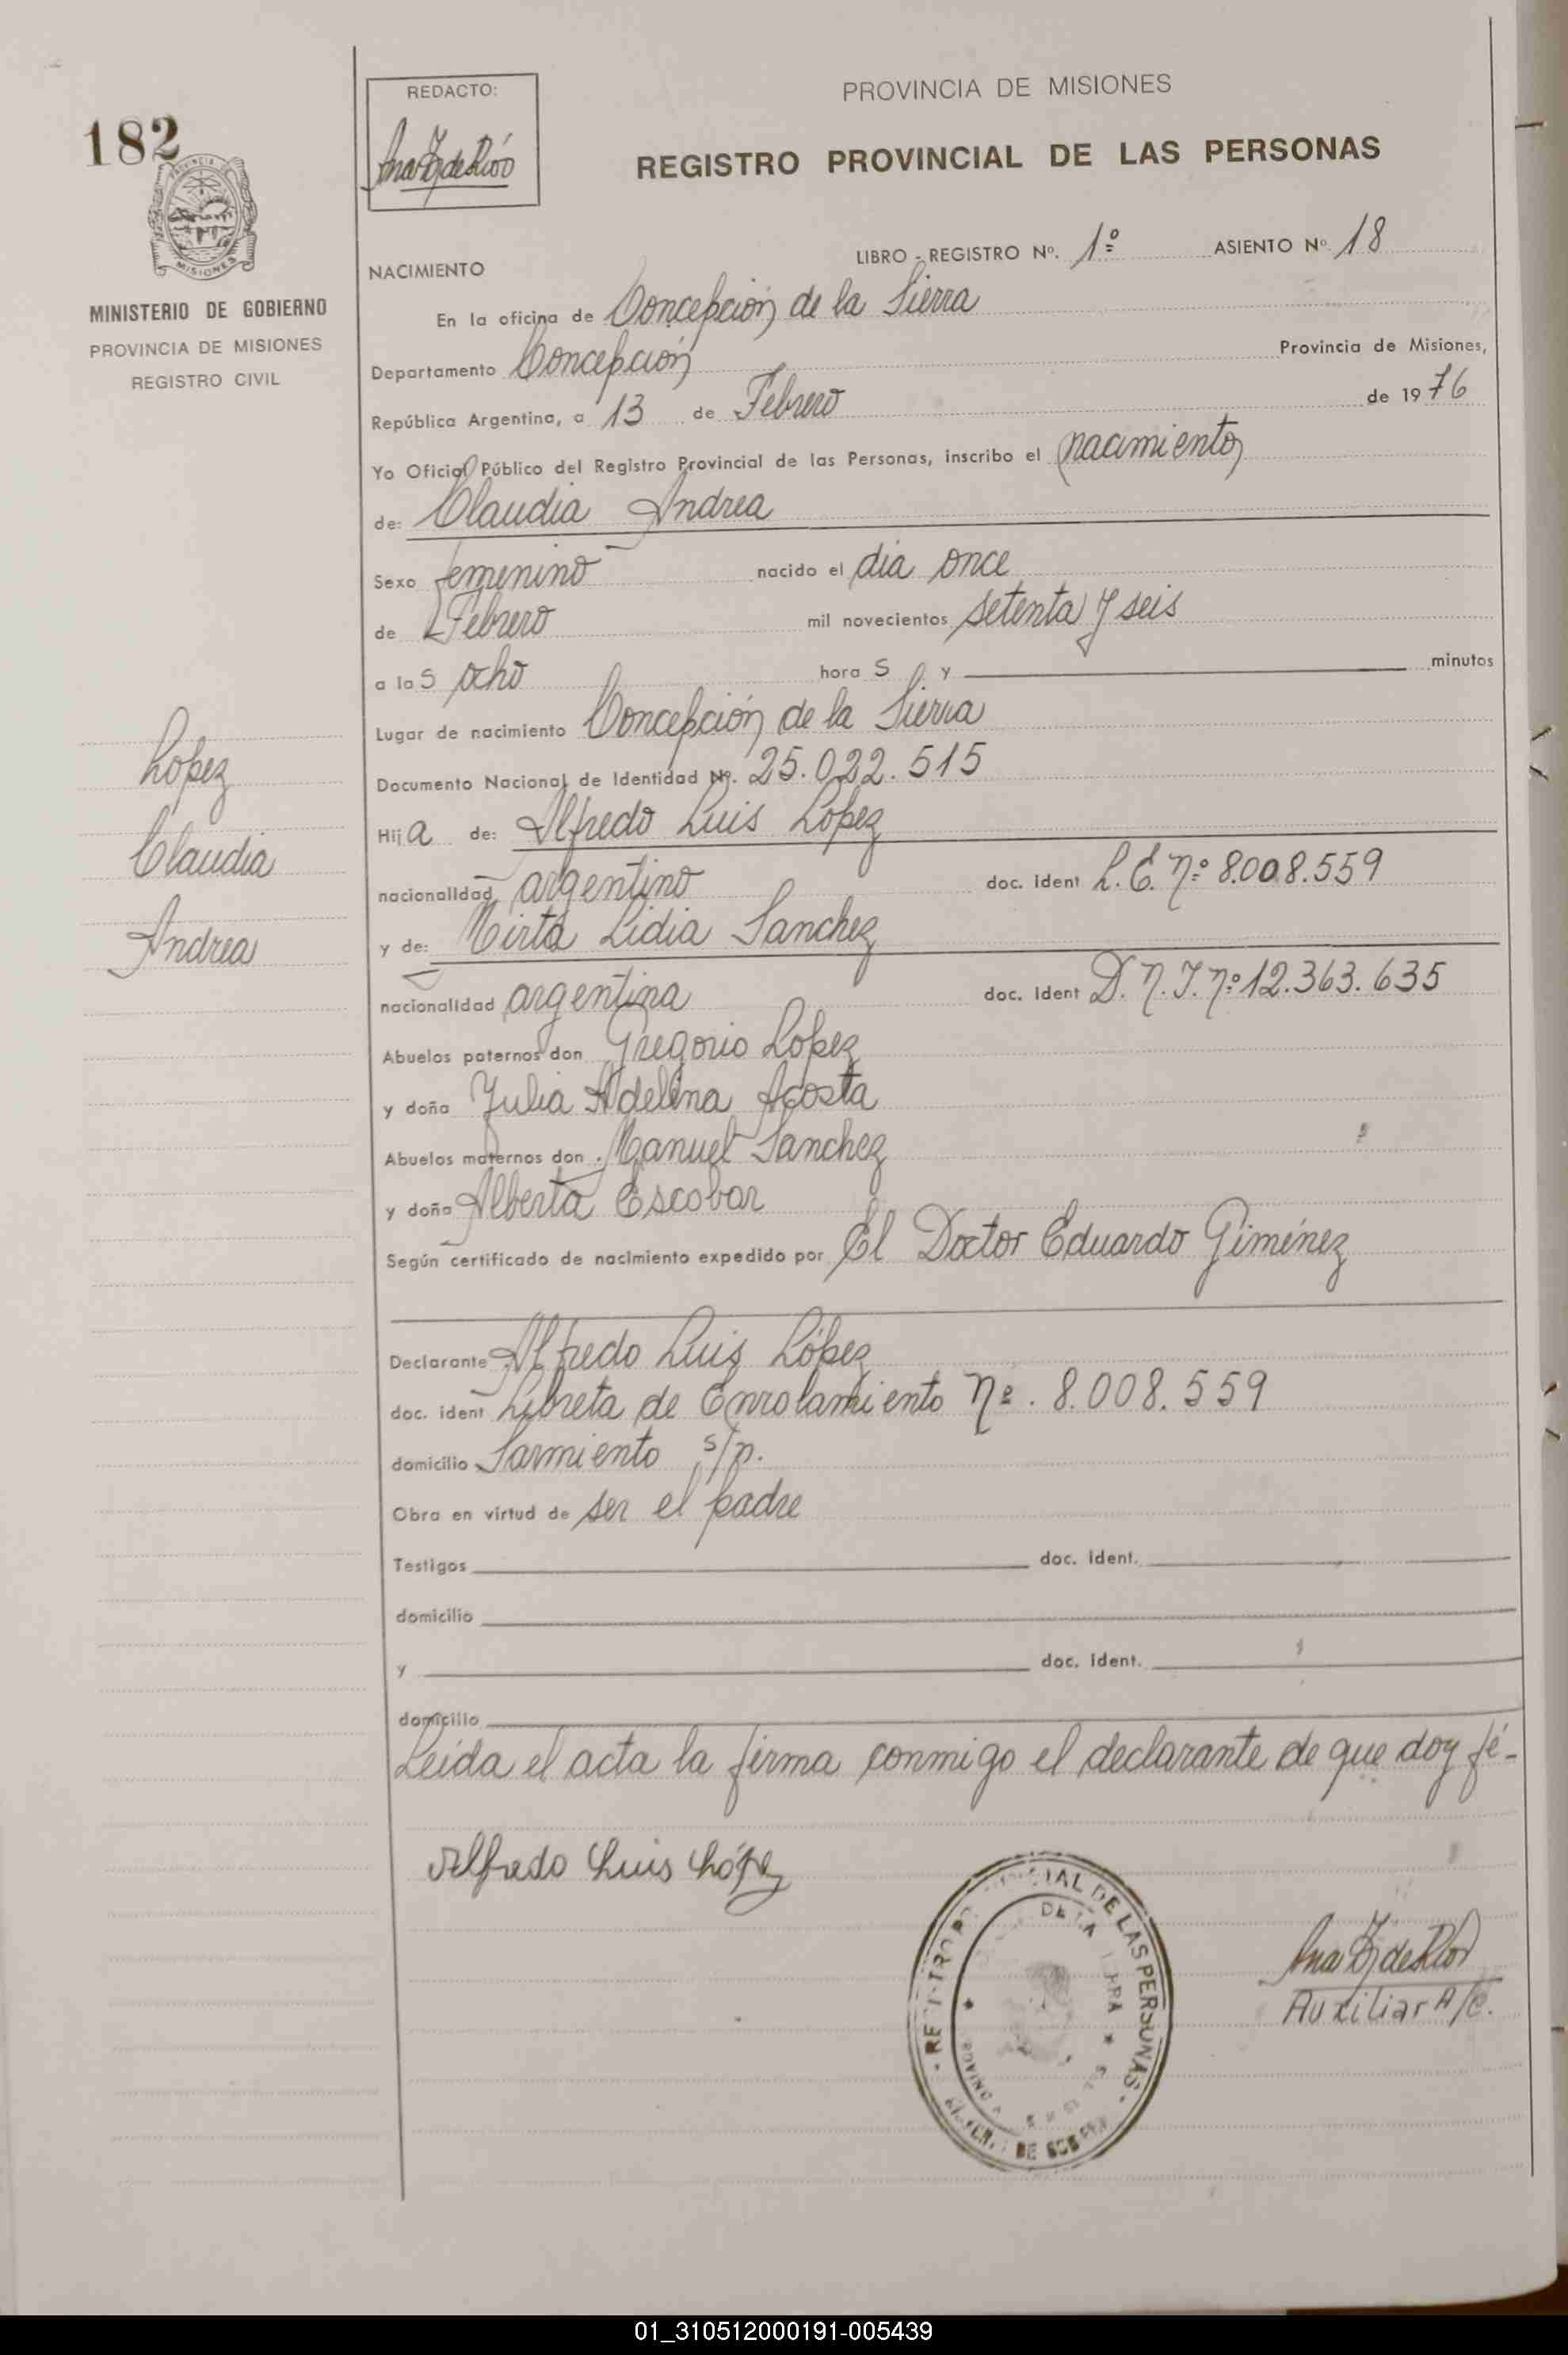 182
PROVINCIA
MISIONES
MINISTERIO DE GOBIERNO
PROVINCIA DE MISIONES
REGISTRO CIVIL
REDACTO:
PROVINCIA DE MISIONES
REGISTRO PROVINCIAL DE LAS PERSONAS
LIBRO - REGISTRO Nº. 1º ASIENTO Nº 18
NACIMIENTO
En la oficina de Concepción de la Sierra
Departamento Concepción Provincia de Misiones,
República Argentina, a 13 de Febrero de 1976
Yo Oficial Público del Registro Provincial de las Personas, inscribo el nacimiento
de: Claudia Andrea
Sexo femenino nacido el dia once
de Febrero mil novecientos setenta y seis
a las ocho horas y minutos
Lugar de nacimiento Concepción de la Sierra
Documento Nacional de Identidad Nº. 25.022.515
Hija de: Alfredo Luis López
nacionalidad argentino doc. ident L.E. nº 8.008.559
y de: Mirta Lidia Sanchez
nacionalidad argentina doc. ident D.N.I. nº 12.363.635
Abuelos paternos don Gregorio López
y doña Julia Adelina Acosta
Abuelos maternos don Manuel Sanchez
y doña Alberta Escobar
Según certificado de nacimiento expedido por El Doctor Eduardo Giménez
Declarante Alfredo Luis López
doc. ident Libreta de Enrolamiento nº. 8.008.559
domicilio Sarmiento s/n.
Obra en virtud de ser el padre
Testigos doc. ident.
domicilio
y doc. ident.
domicilio
Leída el acta la firma conmigo el declarante de que doy fé-
López
Claudia
Andrea
Alfredo Luis López
DE LAS PERSONAS
DE LA
Auxiliar A/C.
01_310512000191-005439